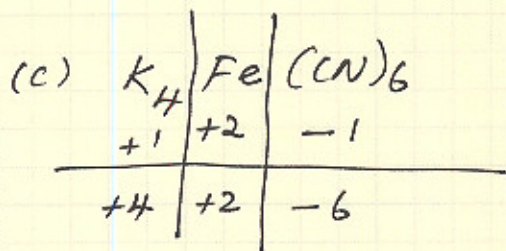 (c) K4 | Fe | (CN)6
+1 | +2 | -1
+4 | +2 | -6